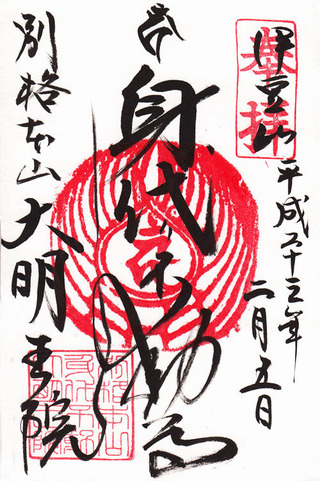 奉拝
伊豆山 平成二十三年
二月五日
身代不動尊
別格本山 大明王院